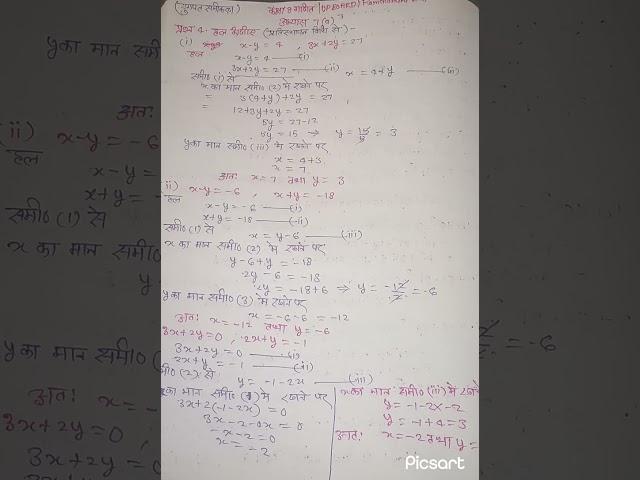 (युगपत समीकरण) कक्षा 8 गणित (UP BOARD)
अभ्यास 7(a)
प्रश्न 4. हल कीजिए (प्रतिस्थापन विधि से) -
(i) x-y = 4 , 3x+2y = 27
हल x-y = 4 —(i)
3x+2y = 27 —(ii)
समी0 (i) से x = 4+y —(iii)
x का मान समी0 (2) में रखने पर
= 3(4+y)+2y = 27
= 12+3y+2y = 27
5y = 27-12
5y = 15 ⇒ y = 15/5 = 3
y का मान समी0 (iii) में रखने पर
x = 4+3
x = 7
अतः x = 7 तथा y = 3
ii) x-y = -6 , x+y = -18
हल x-y = -6 —(i)
x+y = -18 —(ii)
समी0 (1) से x = y-6 —(iii)
x का मान समी0 (2) में रखने पर
y-6+y = -18
2y-6 = -18
2y = -18+6 ⇒ y = -12/2 = -6
y का मान समी0 (3) में रखने पर
x = -6-6 = -12
अतः x = -12 तथा y = -6
3x+2y = 0 , 2x+y = -1
3x+2y = 0 —(i)
2x+y = -1 —(ii)
मी0 (2) से y = -1-2x —(iii)
का मान समी0 (1) में रखने पर
3x+2(-1-2x) = 0
3x-2-4x = 0
-x-2 = 0
x = -2
x का मान समी0 (iii) में रखने
y = -1-2x-2
y = -1+4 = 3
अतः x = -2 तथा y =
Picsart
y का मान समी0
अतः
(ii) x-y = -6
हल x-y =
x+y =
समी0 (1) से
x का मान समी0
y
y का मान समी0
अतः x =
3x+2y = 0,
3x+2y = 0
= -6